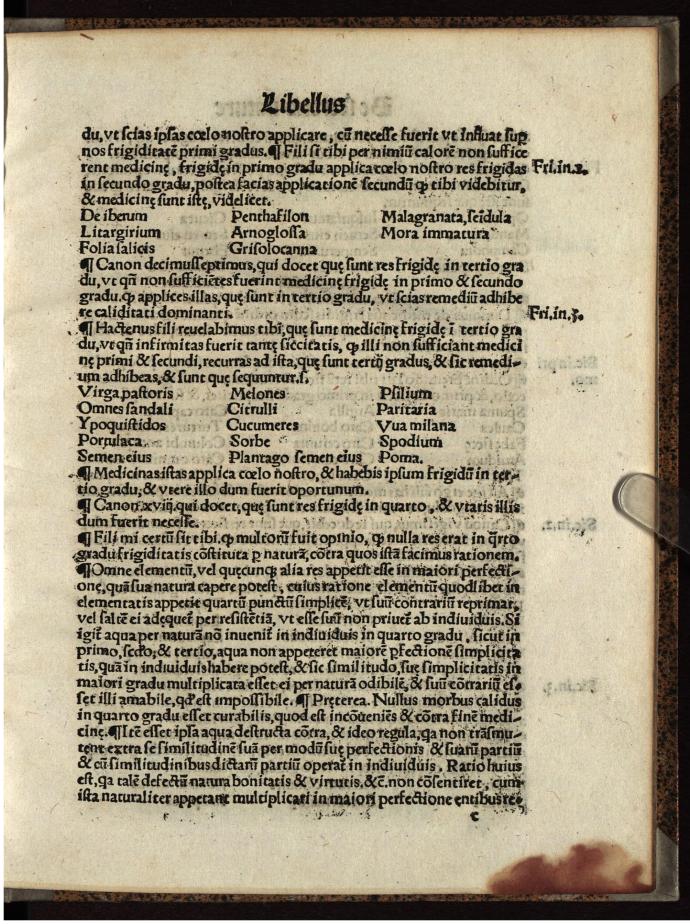 Libellus
du, vt scias ipsas cœlo nostro applicare, cū necesse fuerit vt Influat sup
nos frigiditatē primi gradus. ¶ Fili si tibi per nimiū calorē non suffice
rent medicinę, frigidę in primo gradu applica cœlo nostro res frigidas Fri.in.2.
in secundo gradu, postea facias applicationē secundū qɔ tibi videbitur,
& medicinę sunt istę, videlicet.
De iberum Penthafilon Malagranata, seidula
Litargirium Arnoglossa Mora immatura
Folia salicis Grisolocanna
¶ Canon decimusseptimus, qui docet quę sunt res frigidę in tertio gra
du, vt qñ non sufficiētes fuerint medicinę frigidę in primo & secundo
gradu. qɔ applices illas, quę sunt in tertio gradu, vt scias remediū adhibe
re caliditati dominanti. Fri.in.3.
¶ Hactenus fili reuelabimus tibi, quę sunt medicinę frigidę ī tertio gra
du, vt qñ infirmitas fuerit tantę siccitatis, qɔ illi non sufficiant medici
nę primi & secundi, recurras ad ista, quę sunt tertij gradus, & sic remedi-
um adhibeas, & sunt quę sequuntur. s.
Virga pastoris Melones Psilium
Omnes sandali Citrulli Paritaria
Ypoquistidos Cucumeres Vua milana
Portulaca Sorbe Spodium
Semen eius Plantago semen eius Poma.
¶ Medicinas istas applica cœlo nostro, & habebis ipsum frigidū in ter-
tio gradu, & vtere illo dum fuerit oportunum.
¶ Canon xviij. qui docet, quę sunt res frigidę in quarto, & vtaris illis
dum fuerit necesse.
¶ Fili mi certū sit tibi, qɔ multorū fuit opinio, qɔ nulla res erat in q̄rto
gradu frigiditatis cōstituta p naturā, cōtra quos istā facimus rationem.
¶ Omne elementū, vel quęcunqɜ alia res appetit esse in maiori perfecti-
one, quā sua natura capere potest, cuius ratione elementū quodlibet in
elementatis appetit quartū punctū simplicē, vt suū contrariū reprimat,
vel saltē ei adequet per resistētiā, vt esse suū non priuet ab indiuiduis. Si
igit̄ aqua per naturā nō inuenit̄ in indiuiduis in quarto gradu, sicut in
primo, scd̄o, & tertio, aqua non appeteret maiorē pfectionē simplicita
tis, quā in indiuiduis habere potest, & sic similitudo, suę simplicitatis in
maiori gradu multiplicata esset ei per naturā odibile, & suū cōtrariū es-
set illi amabile, qd̄ est impossibile. ¶ Pręterea. Nullus morbus calidus
in quarto gradu esset curabilis, quod est incōueniēs & cōtra finē medi-
cinę. ¶ Itē esset ipsa aqua destructa cōtra, & ideo regula, qa non trāsmu-
tent extra se similitudinē suā per modū suę perfectionis & suarū partiū
& cū similitudinibus dictarū partiū operat̄ in indiuiduis. Ratio huius
est, qa talē defectū natura bonitatis & virtutis, &c̄. non cōsentiret, cum
ista naturaliter appetant multiplicari in maiori perfectione entibus re-
c